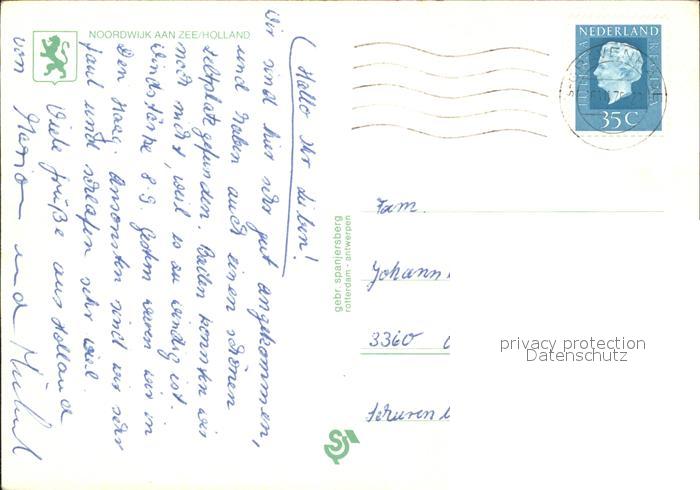 NOORDWIJK AAN ZEE/HOLLAND
Hallo Ihr Lieben!
Wir sind hier sehr gut angekommen,
und haben auch einen schönen
Zeltplatz gefunden. Baden konnten wir
noch nicht, weil es zu windig ist.
Windstärke 8-9. Gestern waren wir in
Den Haag. Ansonsten sind wir sehr
faul und schlafen sehr viel.
Viele Grüße aus Holland
von Marion und Michael
gebr. spanjersberg
rotterdam - antwerpen
NEDERLAND
JULIANA REGINA
35 C
Fam.
Johann
3360
privacy protection
Datenschutz